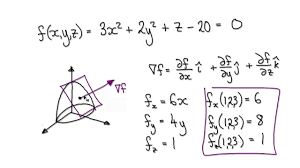 f(x,y,z) = 3x² + 2y² + z - 20 = 0
∇f = ∂f/∂x î + ∂f/∂y ĵ + ∂f/∂z k̂
∇f
fₓ = 6x
fᵧ = 4y
f_z = 1
fₓ(1,2,3) = 6
fᵧ(1,2,3) = 8
f_z(1,2,3) = 1